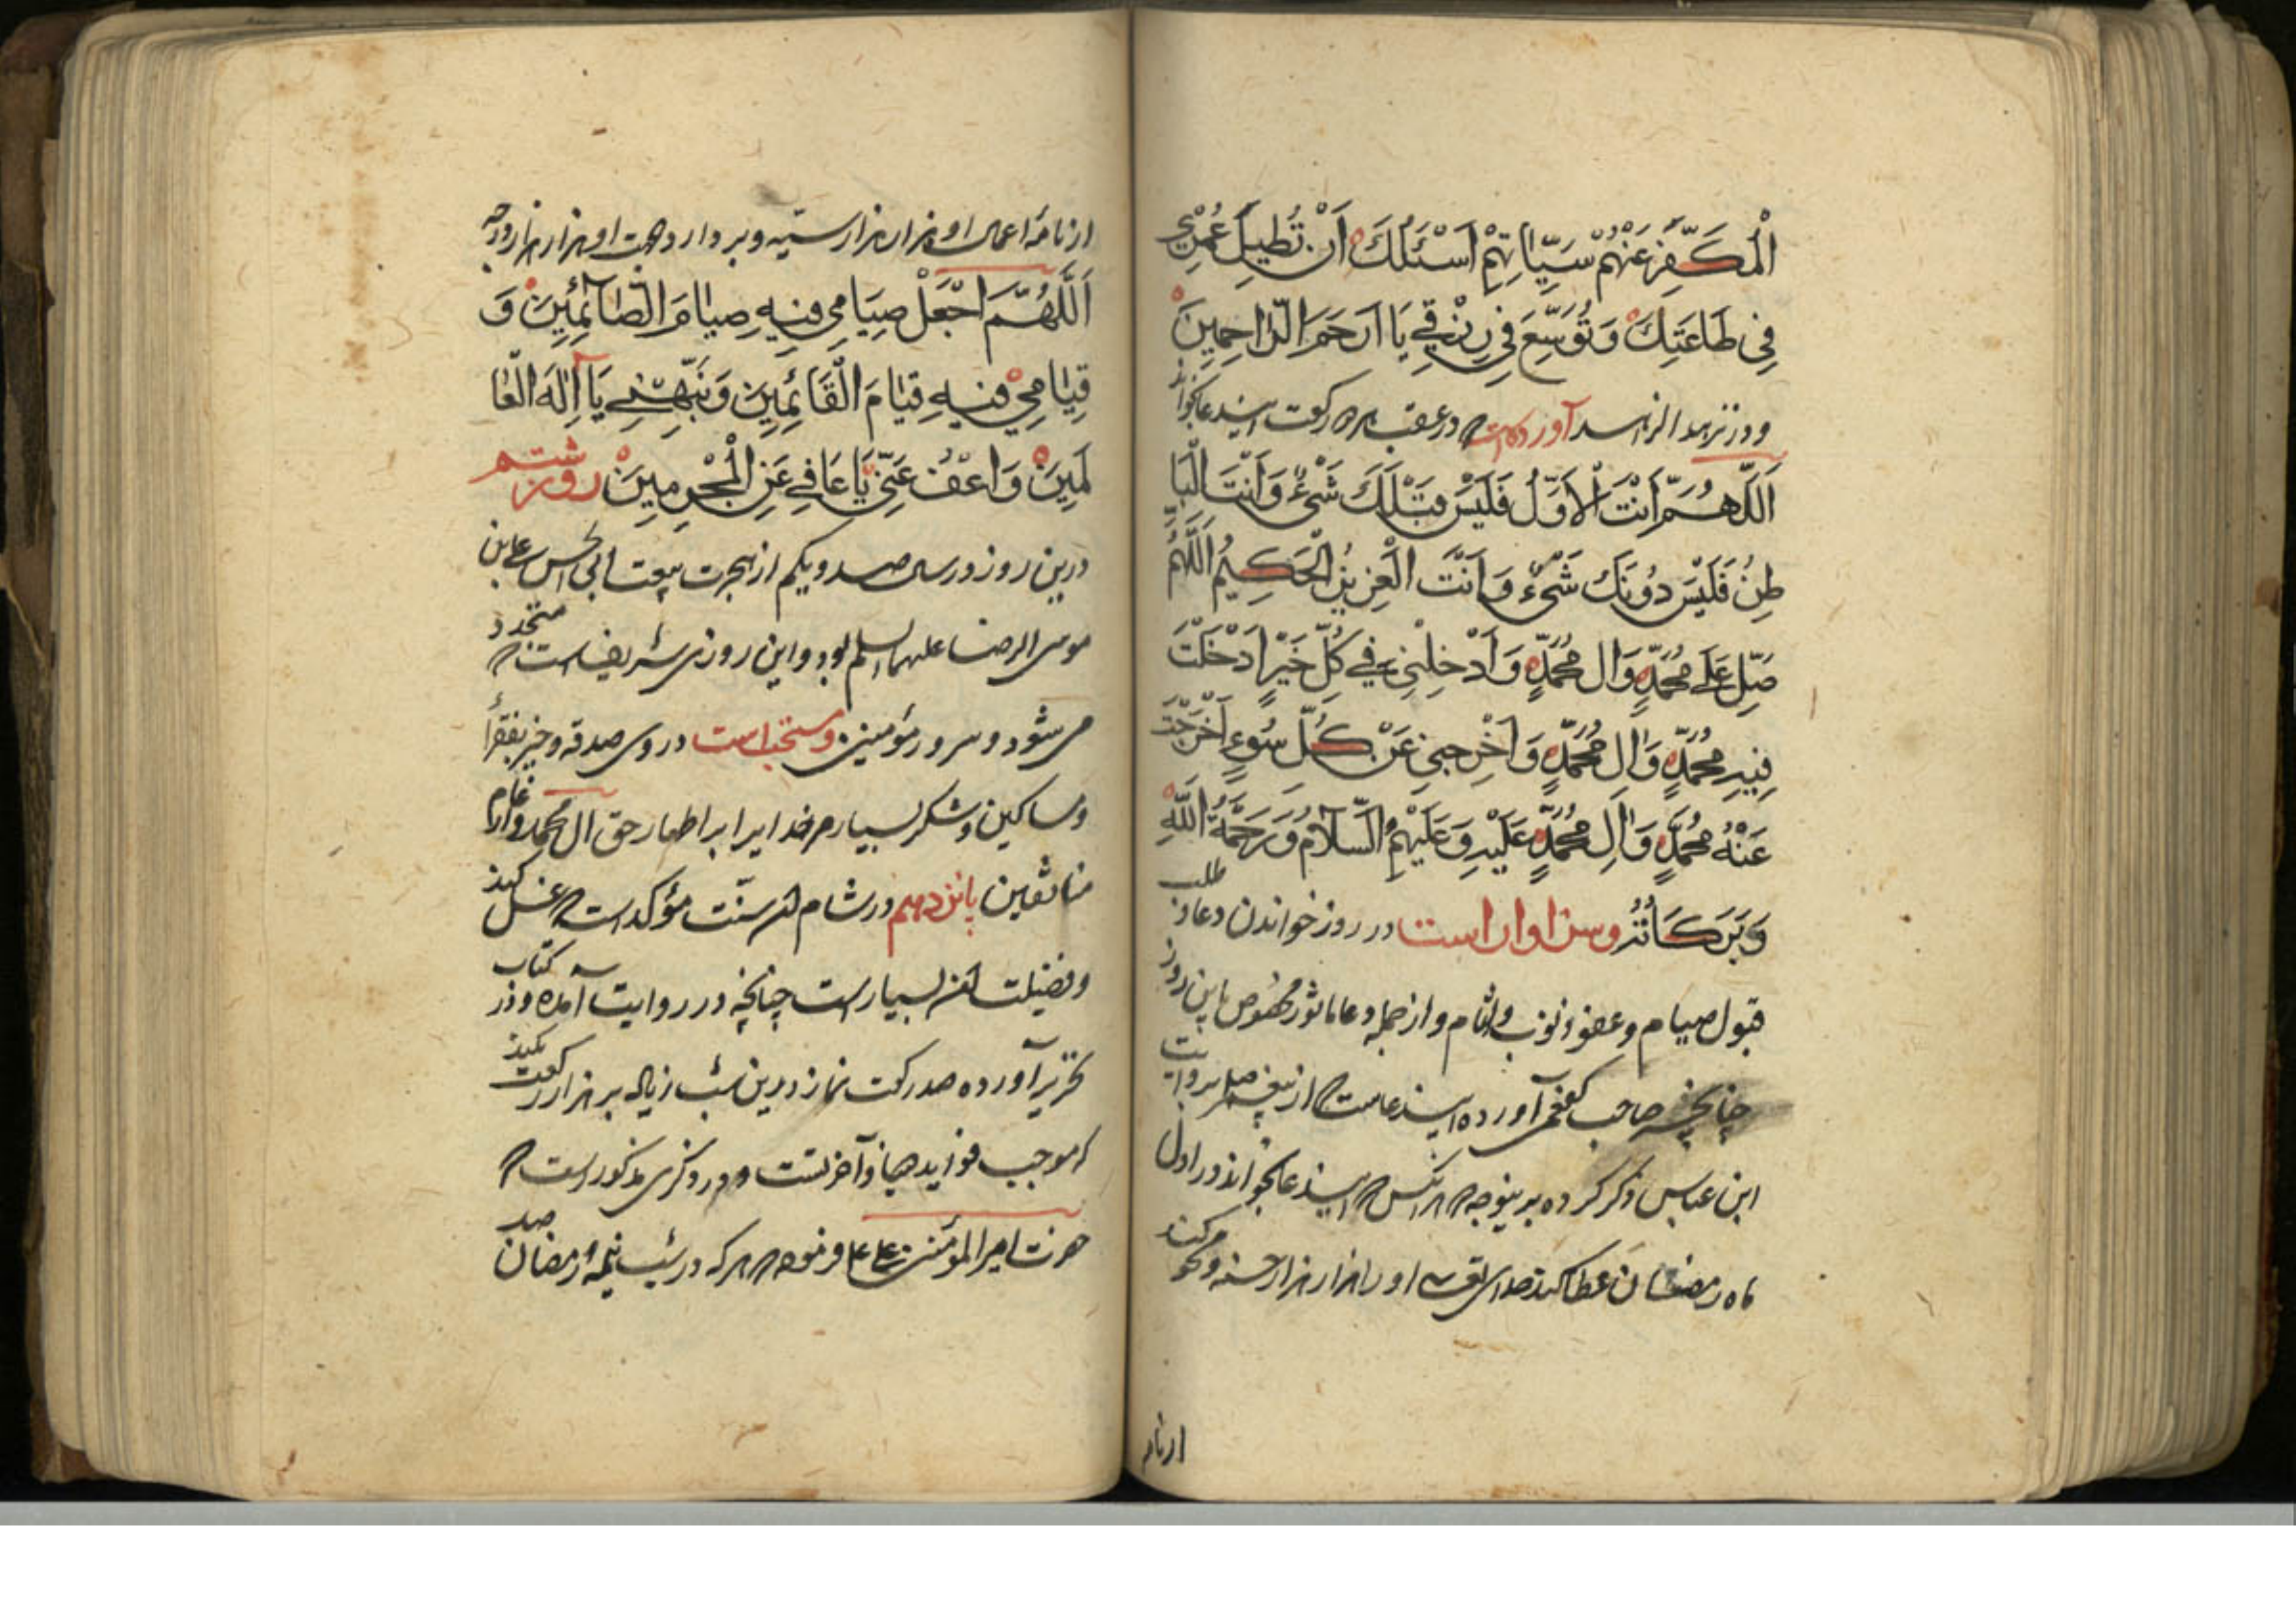 الْمُكَفَّرِ عَنْهُمْ سَيِّئَاتِهِمْ اَسْئَلُكَ اَنْ تُطِيلَ عُمْرِي
فِي طَاعَتِكَ وَتُوَسِّعَ فِي رِزْقِي يَا اَرْحَمَ الرَّاحِمِينَ
و در زبدالزاد آورده است که در عقب هر دو رکعت این دعا بخواند
اَللّٰهُمَّ اَنْتَ الْاَوَّلُ فَلَيْسَ قَبْلَكَ شَيْءٌ وَاَنْتَ الْبَا
طِنُ فَلَيْسَ دُونَكَ شَيْءٌ وَاَنْتَ الْعَزِيزُ الْحَكِيمُ اَللّٰهُمَّ
صَلِّ عَلٰى مُحَمَّدٍ وَاٰلِ مُحَمَّدٍ وَاَدْخِلْنِي فِي كُلِّ خَيْرٍ اَدْخَلْتَ
فِيهِ مُحَمَّدٍ وَاٰلِ مُحَمَّدٍ وَاَخْرِجْنِي عَنْ كُلِّ سُوءٍ اَخْرَجْتَ
عَنْهُ مُحَمَّدٍ وَاٰلِ مُحَمَّدٍ عَلَيْهِ وَعَلَيْهِمُ السَّلَامُ وَرَحْمَةُ اللّٰهِ
وَبَرَكَاتُهُ و سزاوار است در روز خواندن دعا و طلب
قبول صیام و عفو ذنوب و اثام و از جمله دعا ماثور مخصوص باین روز
چنانچه صاحب کفعمی آورده این دعاست که از پیغمبر صلعم بروایت
ابن عباس ذکر کرده برینوجه که هرکس که این دعا بخواند در اول
ماه رمضان عطا کند خدای تعالی او را هزار هزار حسنه و محو کند
از نامه
از نامه اعمال او هزار هزار سیئه و بردارد جهت او هزار هزار درجه
اَللّٰهُمَّ اجْعَلْ صِيَامِي فِيهِ صِيَامَ الصَّائِمِينَ وَ
قِيَامِي فِيهِ قِيَامَ الْقَائِمِينَ وَنَبِّهْنِي يَا اِلٰهَ الْعَا
لَمِينَ وَاعْفُ عَنِّي يَا عَافِي عَنِ الْمُجْرِمِينَ روز ششم
درین روز در سال صد و یکم از هجرت بیعت ابی الحسن علی بن
موسی الرضا علیهما السلم بود و این روزی شریف است که متجدد
می شود در و سرور مؤمنین و مستحب است در وی صدقه و خیر بفقرا
و مساکین و شکر بسیار مر خدایرا بر اظهار حق ال محمد و ارغام
منافقین پانزدهم در شام سنت مؤکد است که غسل کنند
و فضیلت بسیار است چنانچه در روایت آمده و در کتاب
تحریر آورده صد رکعت نماز درین شب زیاده بر هزار رکعت بکند
که موجب فواید و آخرتست و در ذکری مذکور است که
حضرت امیر المؤمنین علی ع فرموده که هرکه در شب نیمه رمضان صد